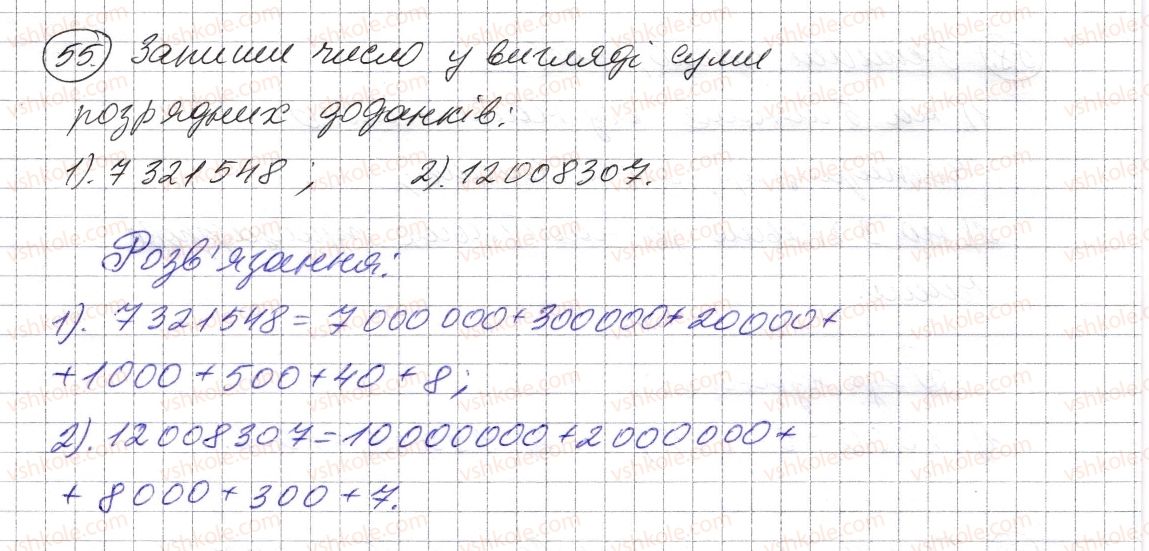 55. Запиши число у вигляді суми
розрядних доданків:
1). 7 321 548; 2). 12 008 307.
Розв'язання:
1). 7 321 548 = 7 000 000 + 300 000 + 20 000 +
+ 1 000 + 500 + 40 + 8;
2). 12 008 307 = 10 000 000 + 2 000 000 +
+ 8 000 + 300 + 7.
vshkole.com